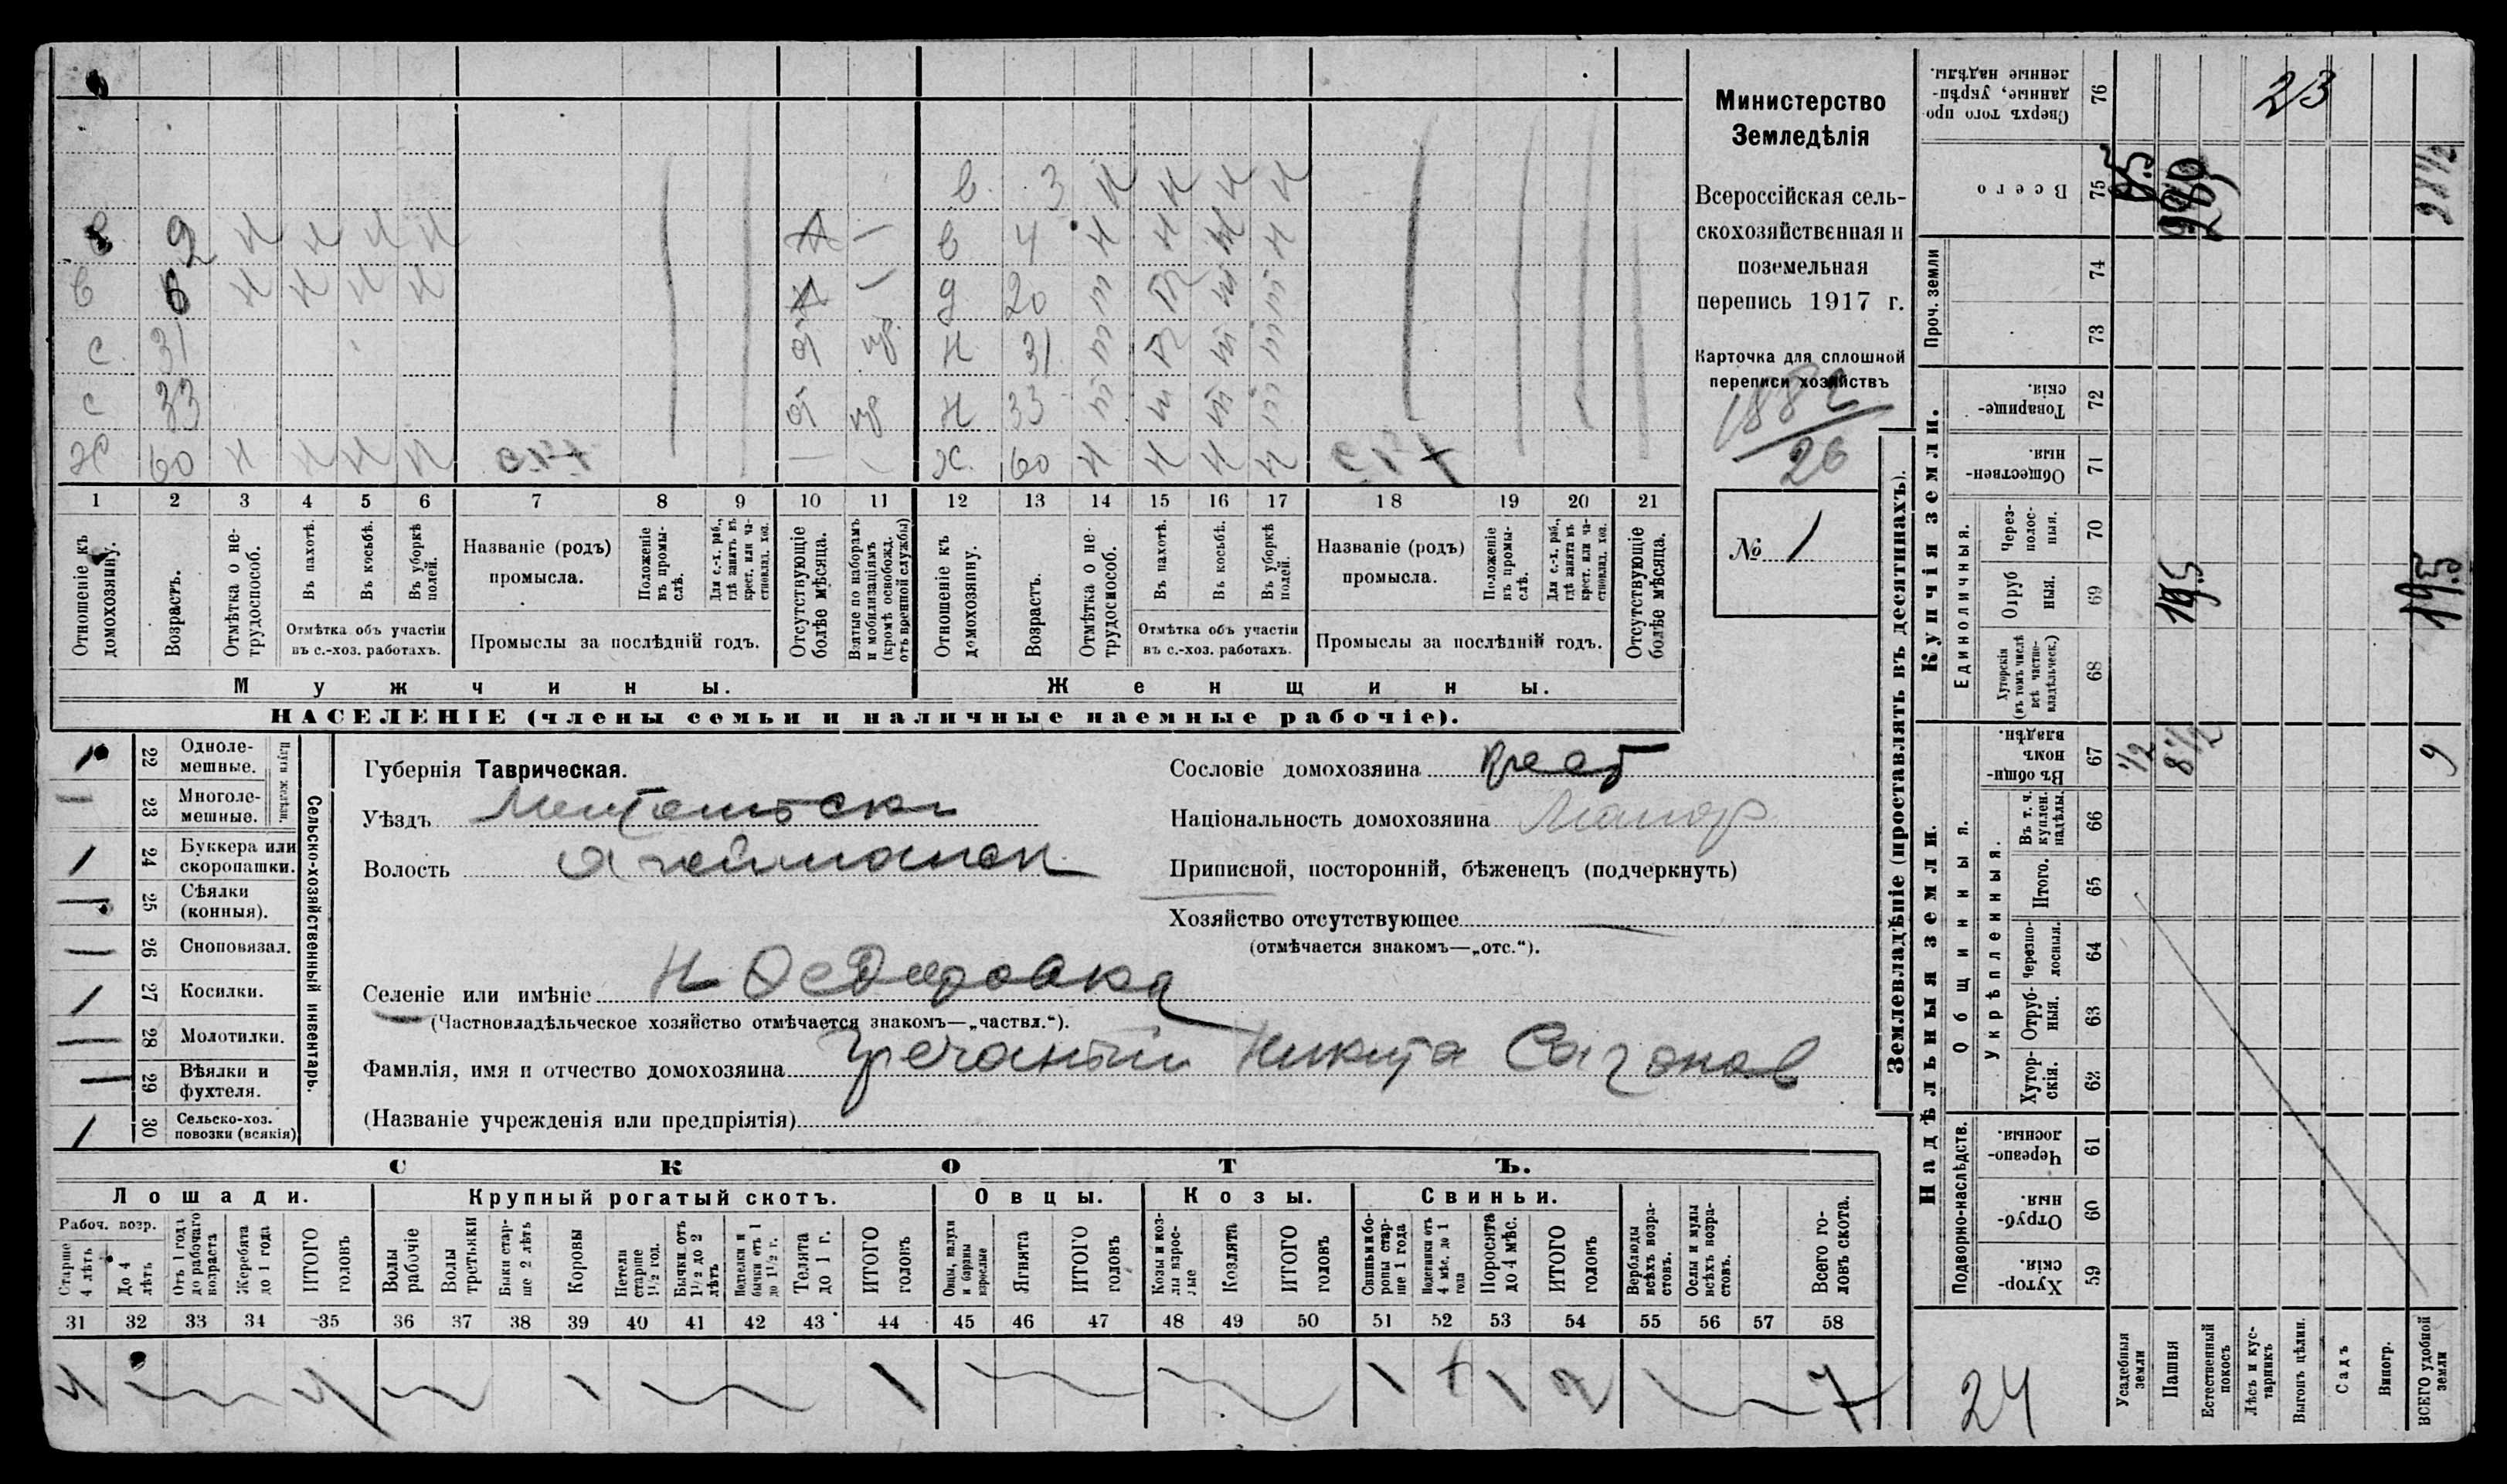 Министерство
Земледѣлія
Всероссійская сель-
скохозяйственная и
поземельная
перепись 1917 г.
Карточка для сплошной
переписи хозяйствъ
1882
26
№ 1
в. 3 н н н н
в 9 н н н н н — в 4 н н н н
в 6 н н н н н — д 20 т т т т
с. 31 от пр. н 31 т т т т
с 33 от пр н 33 т т т т
Ж 60 н н н н — — ж. 60 н н н н
1 2 3 4 5 6 7 8 9 10 11 12 13 14 15 16 17 18 19 20 21
Отношеніе къ домохозяину.
Возрастъ.
Отмѣтка о не-трудоспособ.
Въ пахотѣ.
Въ косьбѣ.
Въ уборкѣ полей.
Отмѣтка объ участіи
въ с.-хоз. работахъ.
Названіе (родъ)
промысла.
Положеніе въ промы-слѣ.
Для с.-х. раб., гдѣ занятъ въ крест. или ча-стновлад. хоз.
Промыслы за послѣдній годъ.
Отсутствующіе болѣе мѣсяца.
Взятые по наборамъ и мобилизаціямъ (кромѣ освобожд. отъ военной службы)
Отношеніе къ домохозяину.
Возрастъ.
Отмѣтка о не-трудоспособ.
Въ пахотѣ.
Въ косьбѣ.
Въ уборкѣ полей.
Отмѣтка объ участіи
въ с.-хоз. работахъ.
Названіе (родъ)
промысла.
Положеніе въ промы-слѣ.
Для с.-х. раб., гдѣ занята въ крест. или ча-стновлад. хоз.
Промыслы за послѣдній годъ.
Отсутствующіе болѣе мѣсяца.
Мужчины. Женщины.
НАСЕЛЕНІЕ (члены семьи и наличные наемные рабочіе).
Сельско-хозяйственный инвентарь.
Плуги желѣзн.
1 22 Одноле-мешные.
— 23 Многоле-мешные.
1 24 Буккера или скоропашки.
25 Сѣялки (конныя).
— 26 Сноповязал.
1 27 Косилки.
— 28 Молотилки.
— 29 Вѣялки и фухтеля.
1 30 Сельско-хоз. повозки (всякія)
Губернія Таврическая.
Уѣздъ
Волость
Селеніе или имѣніе
(Частновладѣльческое хозяйство отмѣчается знакомъ—„частвл.“).
Фамилія, имя и отчество домохозяина Гречаный Никита
(Названіе учрежденія или предпріятія)
Сословіе домохозяина крест
Національность домохозяина Малор
Приписной, посторонній, бѣженецъ (подчеркнуть)
Хозяйство отсутствующее —
(отмѣчается знакомъ—„отс.“).
СКОТЪ.
Лошади. Крупный рогатый скотъ. Овцы. Козы. Свиньи.
Рабоч. возр.
Старше 4 лѣтъ
До 4 лѣтъ
Отъ 1 года до рабочаго возраста
Жеребята до 1 года
ИТОГО головъ
Волы рабочіе
Волы третьяки
Быки стар-ше 2 лѣтъ
Коровы
Нетели старше 1½ год.
Бычки отъ 1½ до 2 лѣтъ
Подтелки и бычки отъ 1 до 1½ г.
Телята до 1 г.
ИТОГО головъ
Овцы, валухи и бараны взрослые
Ягнята
ИТОГО головъ
Козы и коз-лы взрос-лые
Козлята
ИТОГО головъ
Свиньи и бо-ровы стар-ше 1 года
Подсвинки отъ 4 мѣс. до 1 года
Поросята до 4 мѣс.
ИТОГО головъ
Верблюды всѣхъ возра-стовъ.
Ослы и мулы всѣхъ возра-стовъ.
Всего го-ловъ скота.
31 32 33 34 35 36 37 38 39 40 41 42 43 44 45 46 47 48 49 50 51 52 53 54 55 56 57 58
4 4 1 1 1 1 2 7
Землевладѣніе (проставлять въ десятинахъ).
Надѣльныя земли. Купчія земли.
Проч. земли
Сверхъ того про-данные, укрѣп-ленные надѣлы. 76 23
Всего 75
74
73
Товарище-скія. 72
Обществен-ныя. 71
Единоличныя.
Через-полос-ныя. 70
Отруб-ныя. 69 19,5 19,5
Хуторскія (въ томъ числѣ всѣ частно-владѣльческ.) 68
Въ общин-номъ владѣн. 67 ½ 8½ 9
Общинныя.
Укрѣпленныя.
Въ т. ч. куплен. надѣлы. 66
Итого. 65
Черезпо-лосныя. 64
Отруб-ныя. 63
Хутор-скія. 62
Подворно-наслѣдств.
Черезпо-лосныя. 61
Отруб-ныя. 60
Хутор-скія. 59
24
Усадебныя земли
Пашня
Естественный покосъ
Лѣсъ и кус-тарникъ
Выгонъ цѣлин.
Садъ
Виногр.
ВСЕГО удобной земли